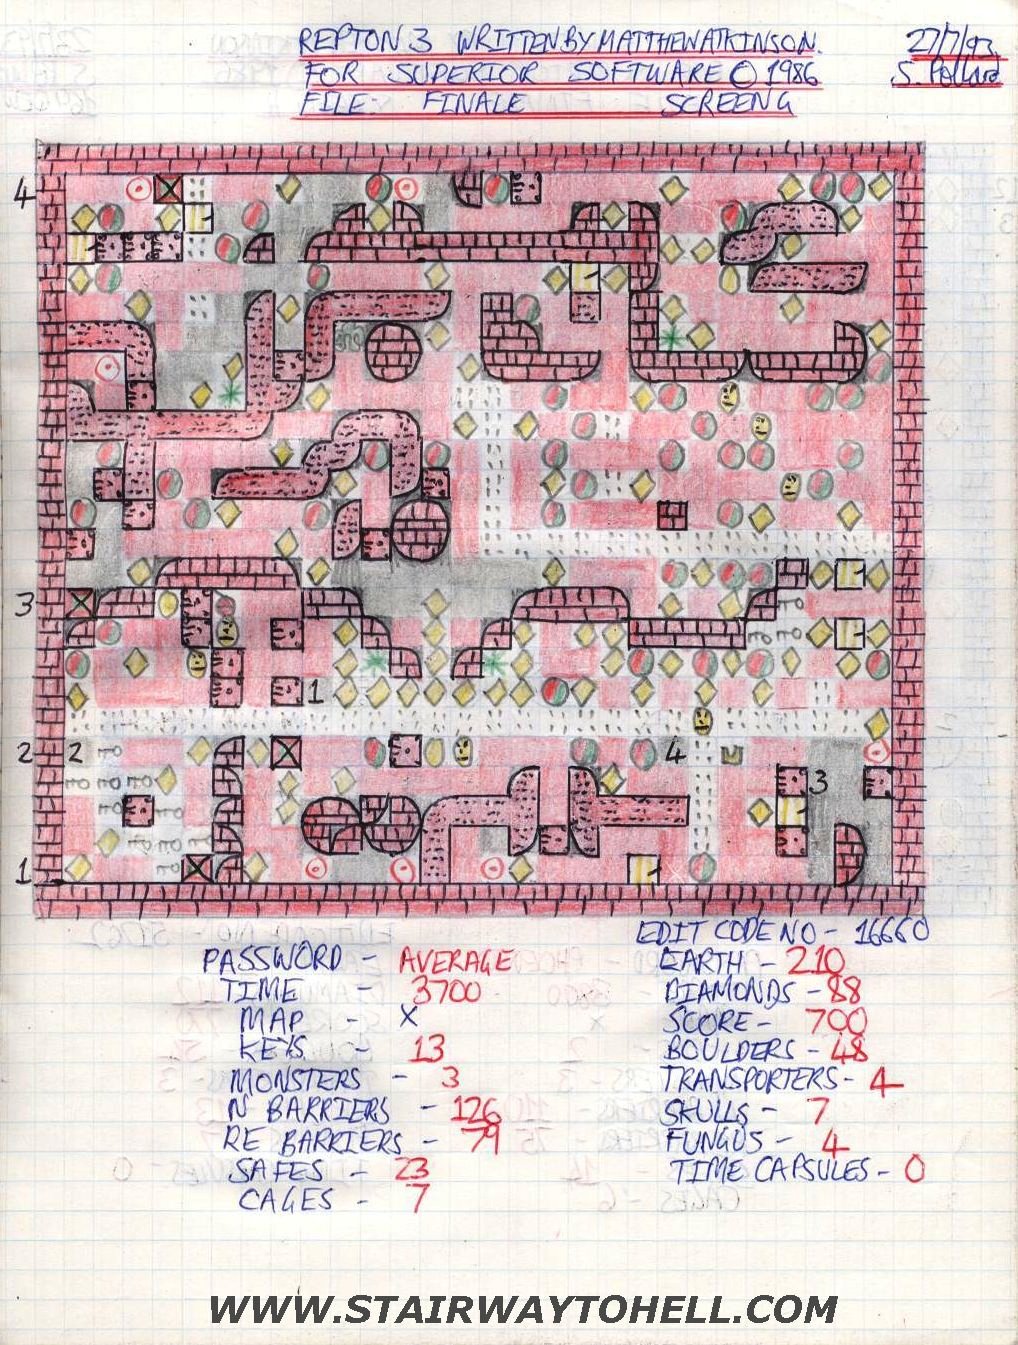 REPTON 3 WRITTEN BY MATTHEW ATKINSON. 27/7/93
FOR SUPERIOR SOFTWARE © 1986 S. Pollard
FILE: FINALE SCREEN G
4
3
1
2 2 4
3
1
EDIT CODE NO - 16660
PASSWORD - AVERAGE EARTH - 210
TIME - 3700 DIAMONDS - 88
MAP - X SCORE - 700
KEYS - 13 BOULDERS - 48
MONSTERS - 3 TRANSPORTERS - 4
N BARRIERS - 126 SKULLS - 7
RE BARRIERS - 79 FUNGUS - 4
SAFES - 23 TIME CAPSULES - 0
CAGES - 7
WWW.STAIRWAYTOHELL.COM